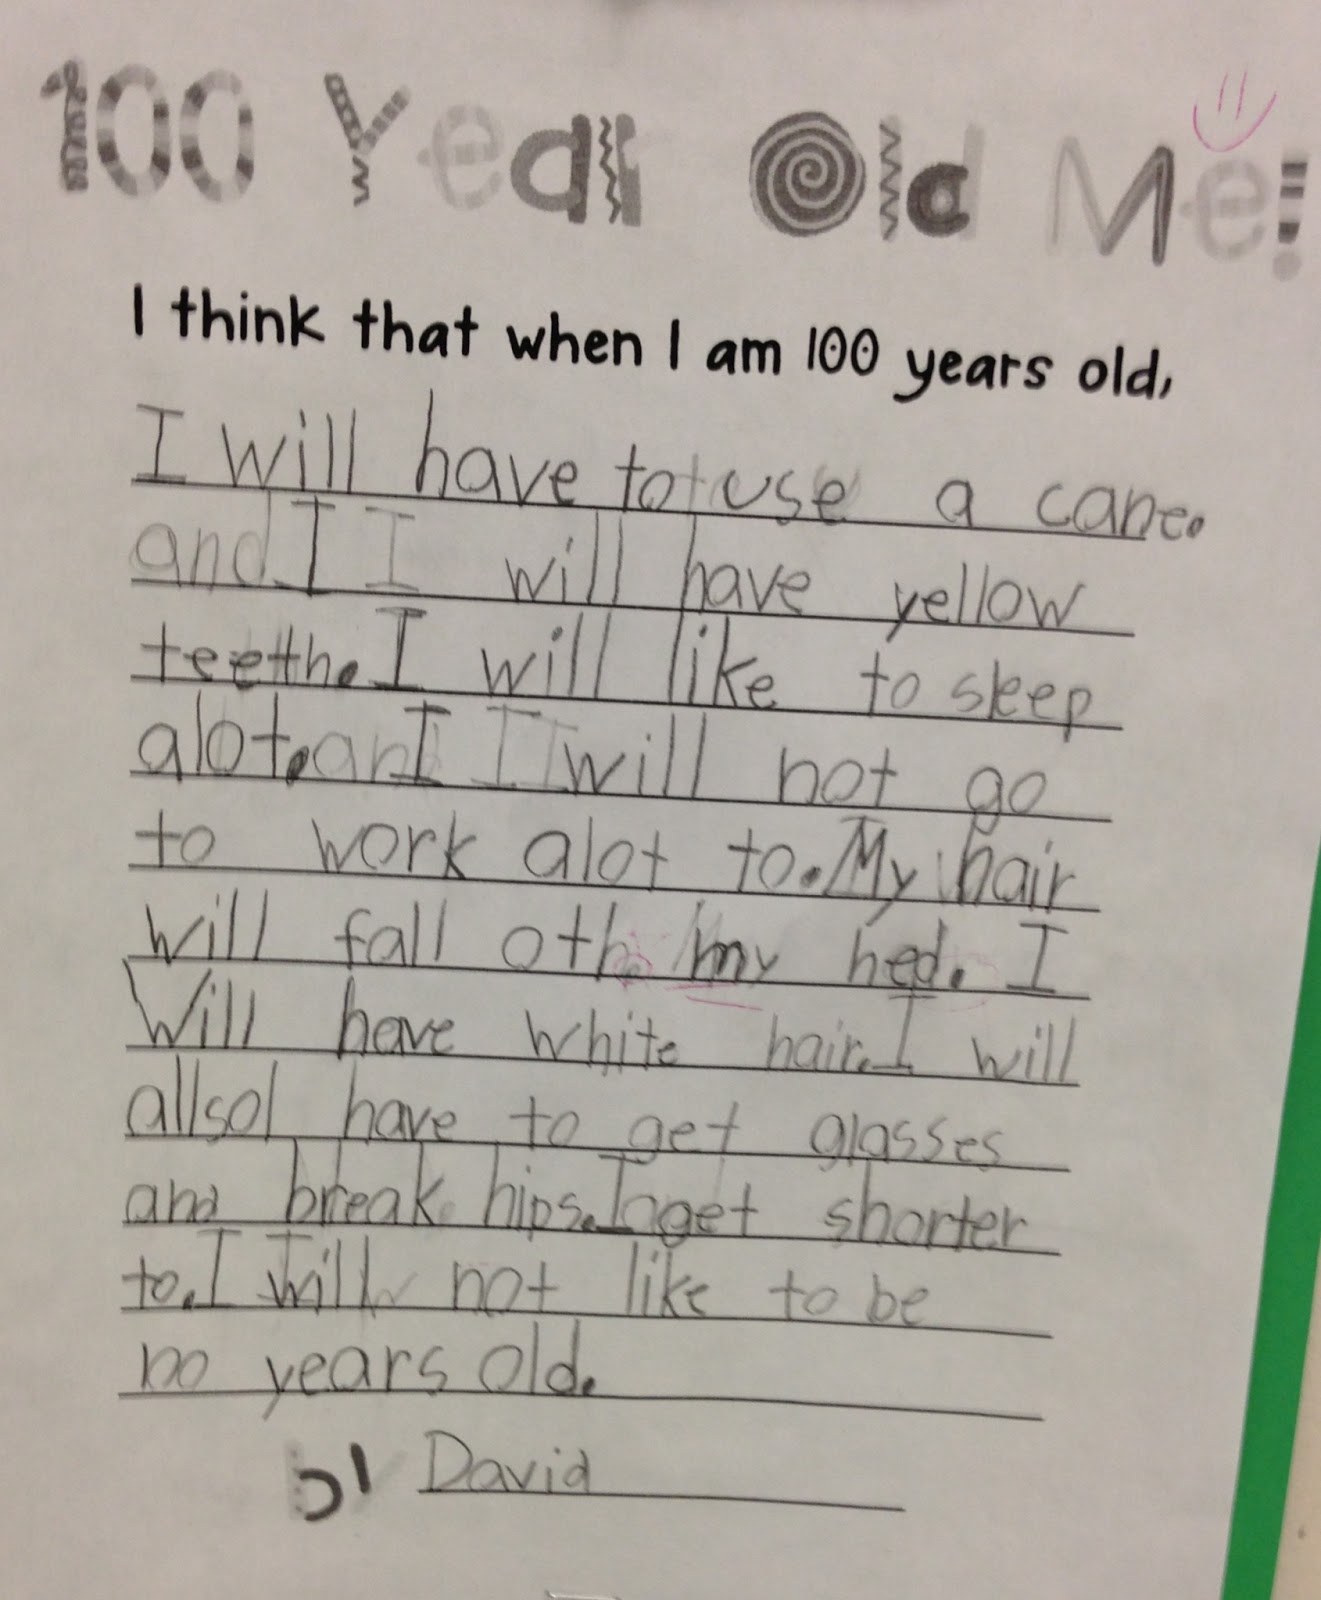 100 Year Old Me!
I think that when I am 100 years old,
I will have to use a cane.
I will have yellow
teeth. I will like to sleep
alot. I will not go
to work alot to. My hair
will fall oth my hed. I
Will have white hair. I will
allsol have to get glasses
and break hips. I get shorter
to. I will not like to be
100 years old.
by David